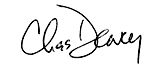 Chas Dewey